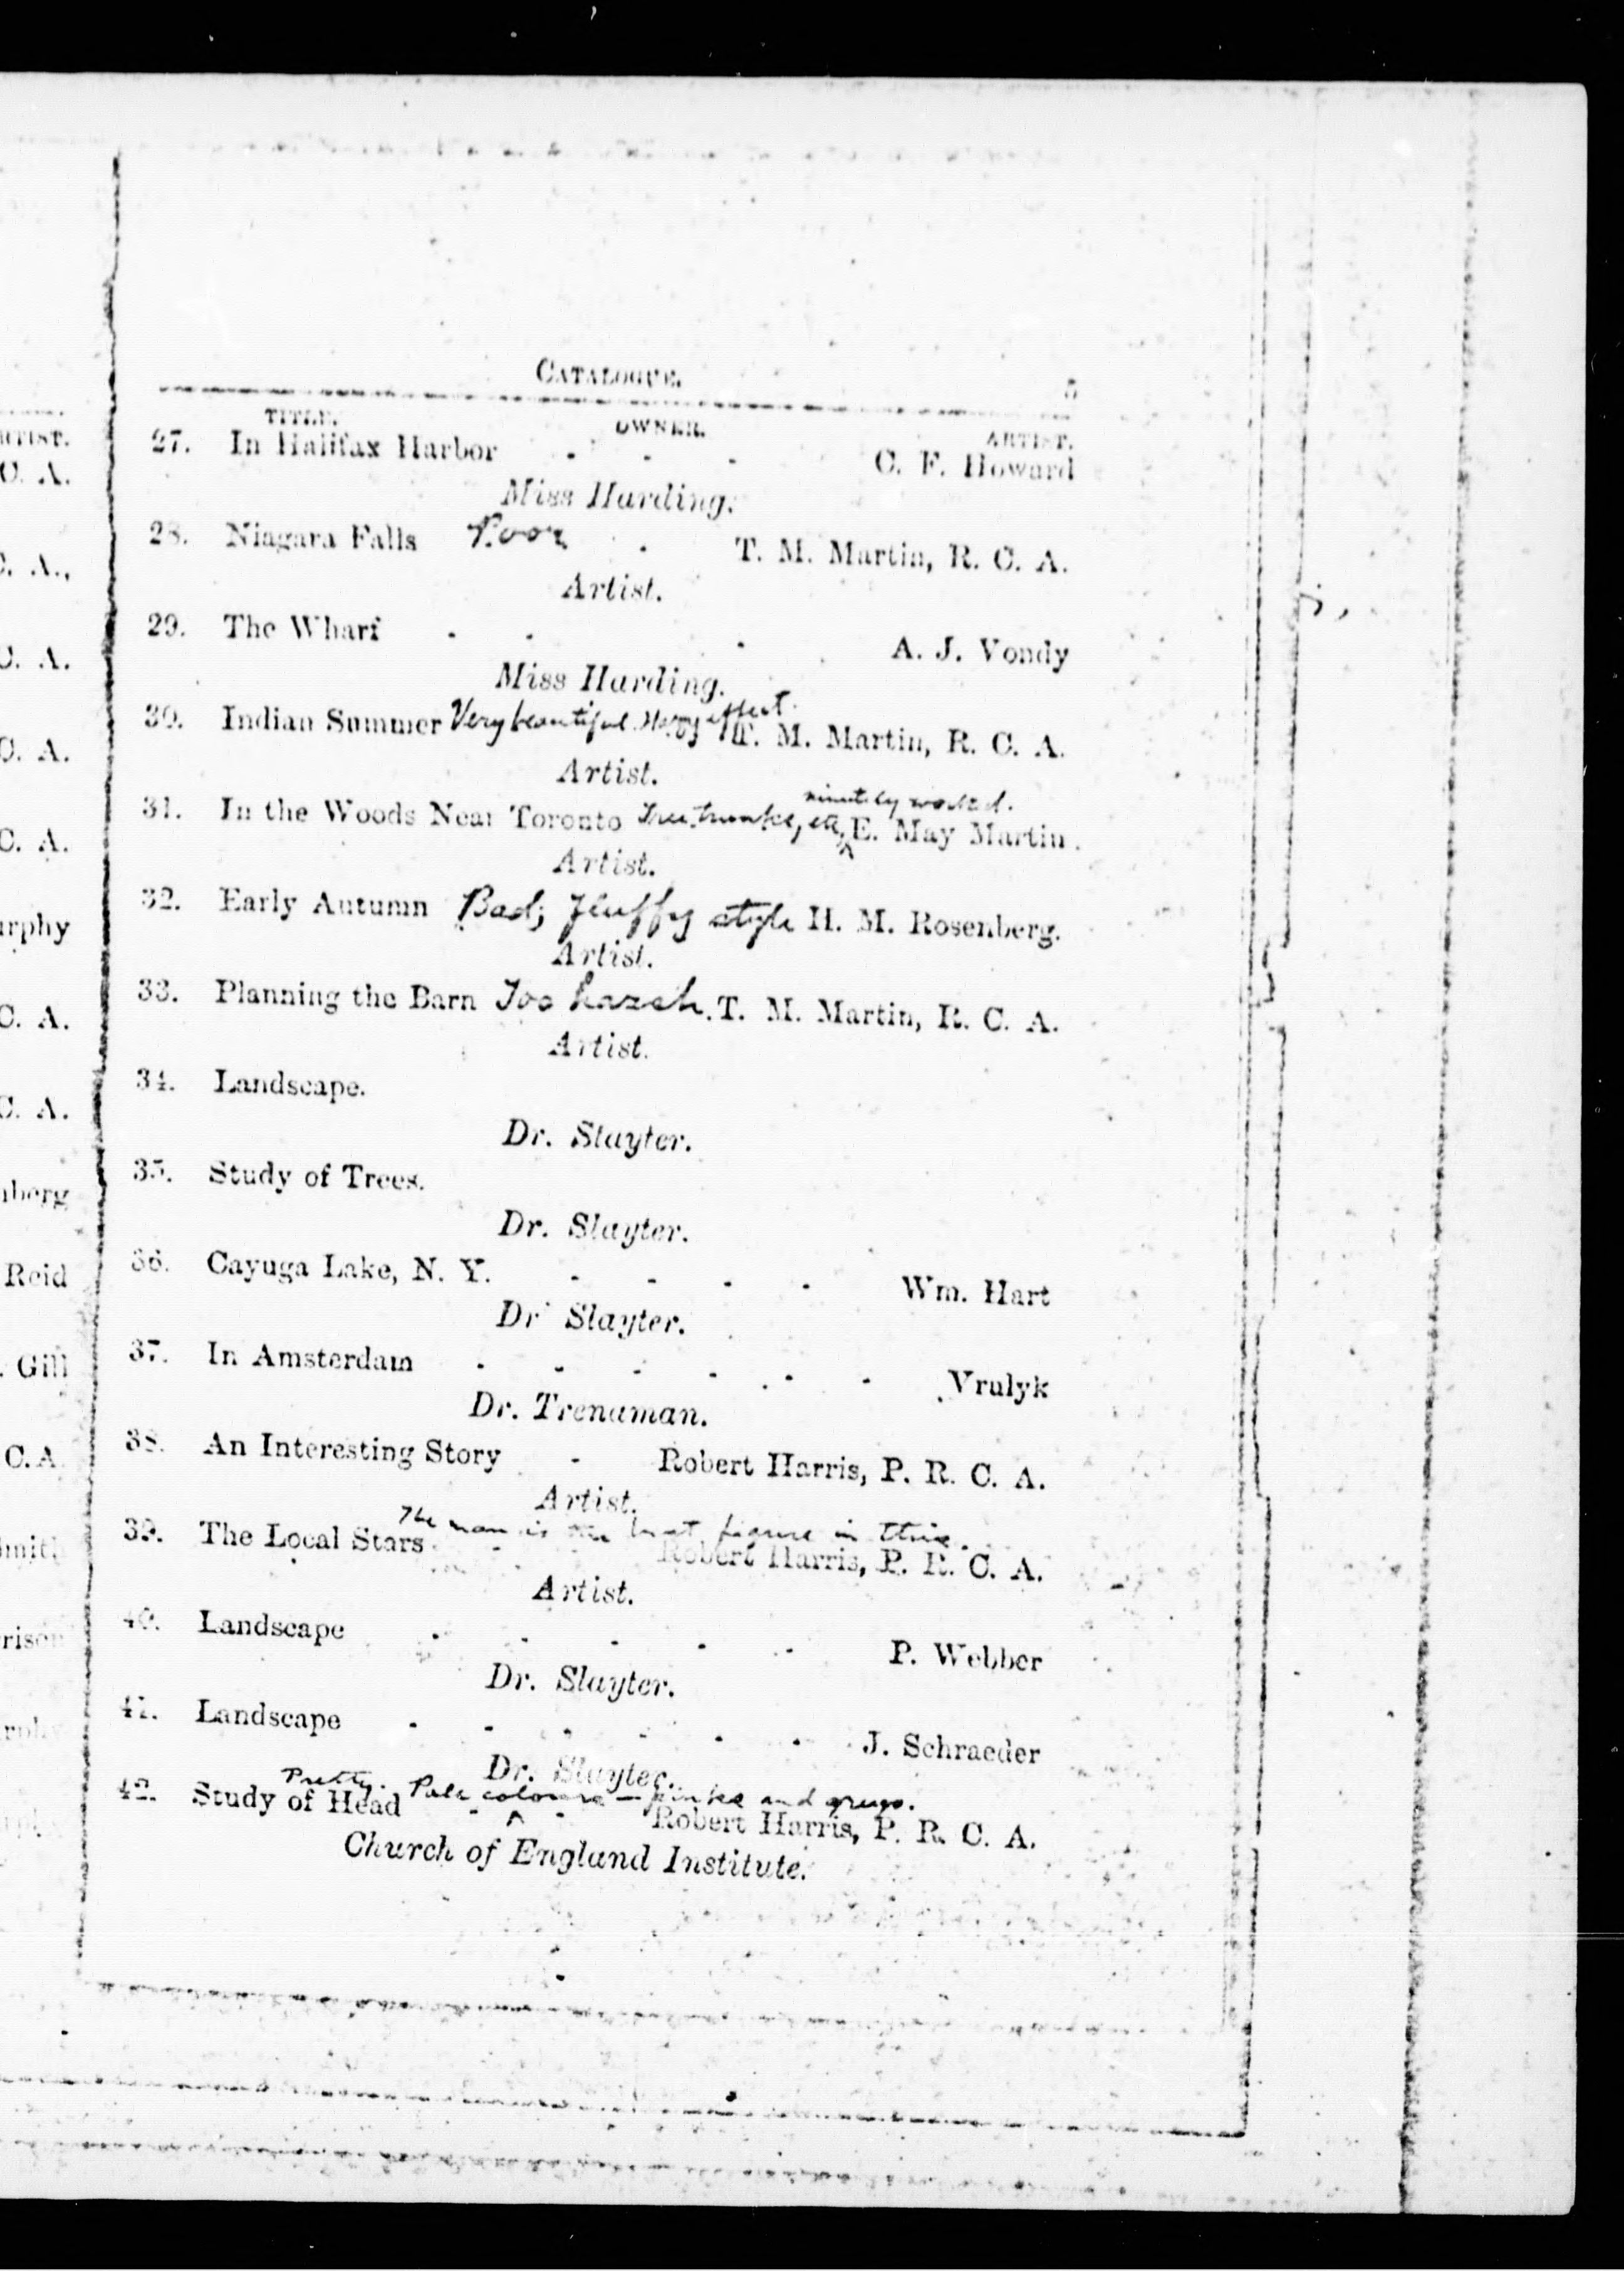 CATALOGUE. 5
TITLE. OWNER. ARTIST.
27. In Halifax Harbor - - - C. F. Howard
Miss Harding.
28. Niagara Falls Poor - T. M. Martin, R. C. A.
Artist.
29. The Wharf - - - A. J. Vondy
Miss Harding.
30. Indian Summer Very beautiful. Hazy effect. T. M. Martin, R. C. A.
Artist.
minutely worked.
31. In the Woods Near Toronto Tree trunks, etc, ^ E. May Martin.
Artist.
32. Early Autumn Bad; fluffy style H. M. Rosenberg.
Artist.
33. Planning the Barn Too harsh. T. M. Martin, R. C. A.
Artist.
34. Landscape.
Dr. Slayter.
35. Study of Trees.
Dr. Slayter.
36. Cayuga Lake, N. Y. - - - - Wm. Hart
Dr. Slayter.
37. In Amsterdam - - - - - - Vrulyk
Dr. Trenaman.
38. An Interesting Story - Robert Harris, P. R. C. A.
Artist.
The man is the best figure in this.
39. The Local Stars - Robert Harris, P. R. C. A.
Artist.
40. Landscape - - - - - P. Webber
Dr. Slayter.
41. Landscape - - - - - - J. Schraeder
Dr. Slayter.
Pretty. Pale colours — pinks and greys.
42. Study of Head - ^ - Robert Harris, P. R. C. A.
Church of England Institute.
ARTIST.
C. A.
C. A.,
C. A.
C. A.
C. A.
urphy
C. A.
C. A.
nberg
Reid
. Gill
C. A
Smith
rison